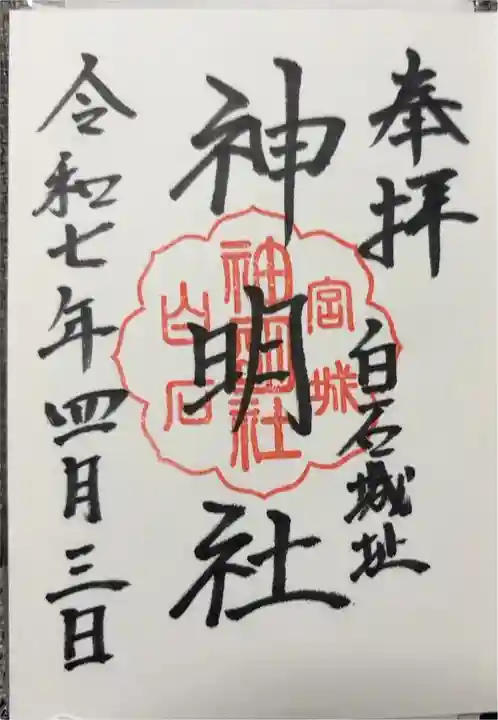 奉拝
白石城址
神明社
宮城
神明社
白石
令和七年四月三日